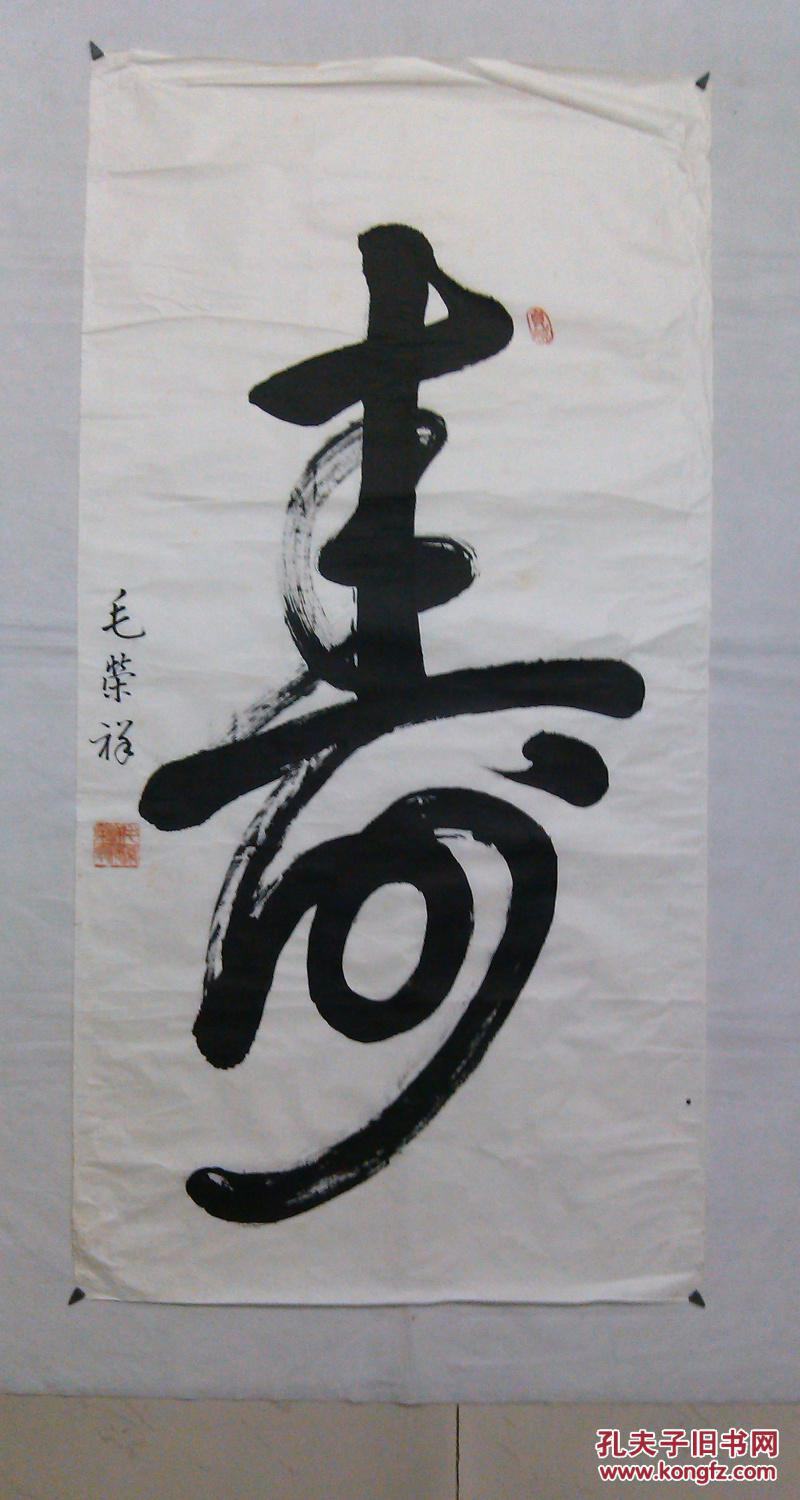 寿
毛榮祥
孔夫子旧书网
www.kongfz.com